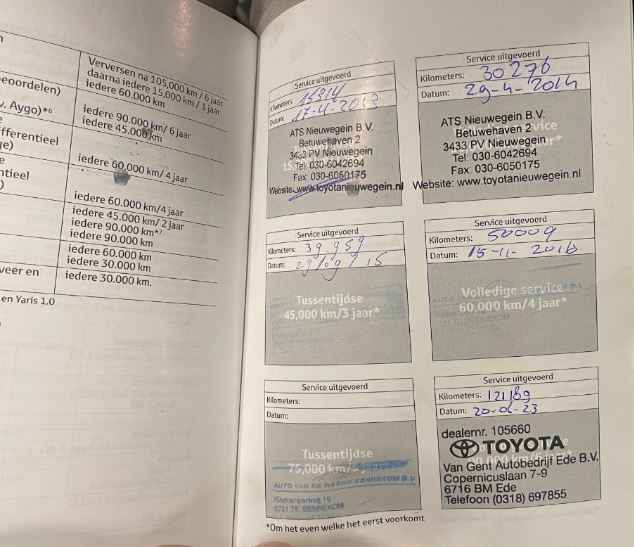 Verversen na 105.000 km / 6 jaar
daarna iedere 15.000 km / 1 jaar
iedere 60.000 km
eoordelen)
iedere 90.000 km/ 6 jaar
v. Aygo)*⁶
iedere 45.000 km
fferentieel
ge)
iedere 60.000 km/ 4 jaar
entieel
iedere 60.000 km/4 jaar
iedere 45.000 km/ 2 jaar
iedere 90.000 km*⁷
iedere 90.000 km
iedere 60.000 km
iedere 30.000 km
veer en
iedere 30.000 km.
en Yaris 1.0
Service uitgevoerd
Kilometers:
Datum:
ATS Nieuwegein B.V.
Betuwehaven 2
3433 PV Nieuwegein
Tel 030-6042694
Fax 030-6050175
Website: www.toyotanieuwegein.nl
Service uitgevoerd
Kilometers: 30276
Datum: 29-4-2014
ATS Nieuwegein B.V.
Betuwehaven 2
3433 PV Nieuwegein
Tel 030-6042694
Fax 030-6050175
Website: www.toyotanieuwegein.nl
Service uitgevoerd
Kilometers: 39.959
Datum: /09/15
Tussentijdse
45,000 km/3 jaar*
Service uitgevoerd
Kilometers: 50009
Datum: 15-11-2016
Volledige service
60,000 km/4 jaar*
Service uitgevoerd
Kilometers:
Datum:
Tussentijdse
75,000 km/
Service uitgevoerd
Kilometers: 121189
Datum: 20-06-23
dealernr. 105660
TOYOTA
Van Gent Autobedrijf Ede B.V.
Copernicuslaan 7-9
6716 BM Ede
Telefoon (0318) 697855
*Om het even welke het eerst voorkomt